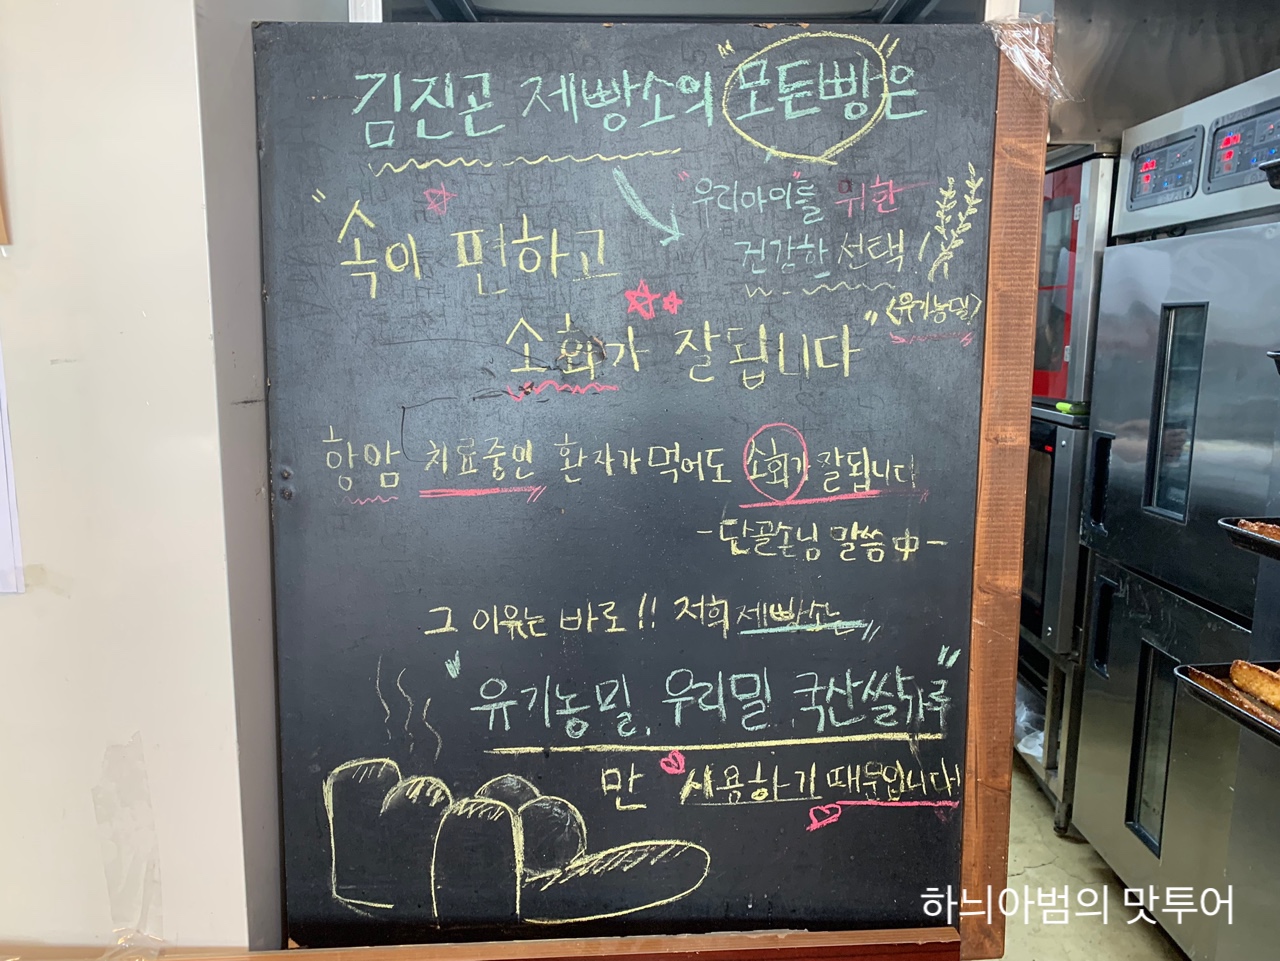 김진곤 제빵소의 "모든빵"은
"우리아이"를 위한
건강한 선택!
<유기농밀>
"속이 편하고
소화가 잘됩니다"
항암 치료중인 환자가 먹어도 소화가 잘됩니다
-단골손님 말씀 中-
그 이유는 바로!! 저희 제빵소는
"유기농밀, 우리밀, 국산쌀가루"
만 사용하기 때문입니다!
하늬아범의 맛투어